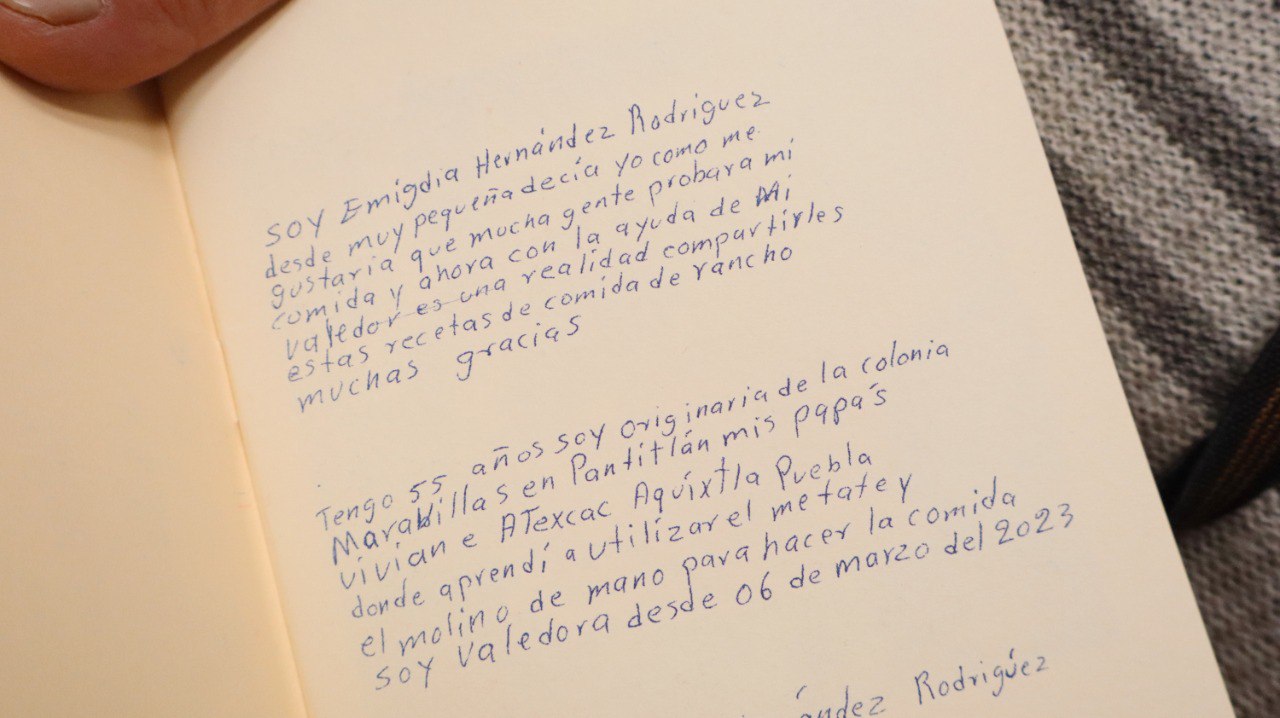 SOY Emigdia Hernández Rodriguez
desde muy pequeña decía yo como me
gustaria que mucha gente probara mi
comida y ahora con la ayuda de Mi
valedor es una realidad compartirles
estas recetas de comida de rancho
muchas gracias
Tengo 55 años soy originaria de la colonia
Maravillas en Pantitlán mis papás
vivian e ATexcac Aquíxtla Puebla
donde aprendí a utilizar el metate y
el molino de mano para hacer la comida
soy valedora desde 06 de marzo del 2023
ández Rodrigúez